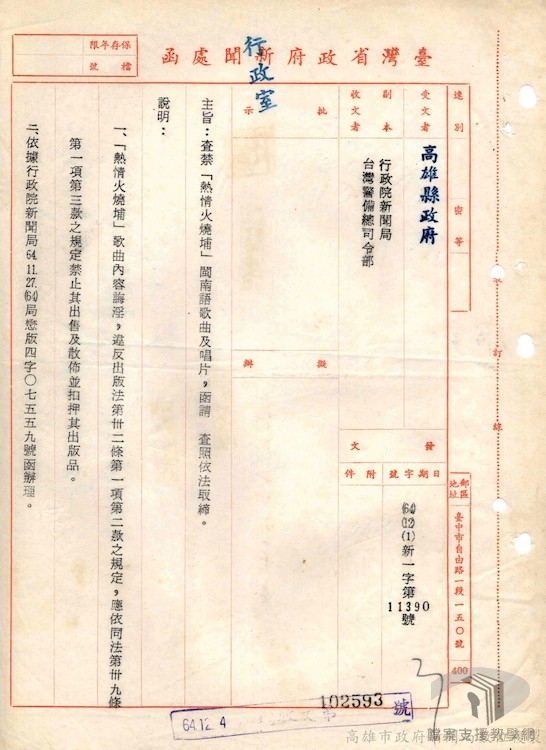 臺灣省政府新聞處函
保存年限
檔號
行政室
速別
密等
受文者
高雄縣政府
副本收文者
行政院新聞局
台灣警備總司令部
批示
擬辦
發文
日期字號附件
(64)(12)(1)新一字第11390號
郵區地址
臺中市自由路一段一五〇號
400
訂
線
主旨：查禁「熱情火燒埔」閩南語歌曲及唱片，函請　查照依法取締。
說明：
一、「熱情火燒埔」歌曲內容誨淫，違反出版法第卅二條第一項第二款之規定，應依同法第卅九條
第一項第三款之規定禁止其出售及散佈並扣押其出版品。
二、依據行政院新聞局64.11.27.(64)局懋版四字〇七五五九號函辦理。
64.12.4
102593
號
檔案支援教學網
高雄市政府